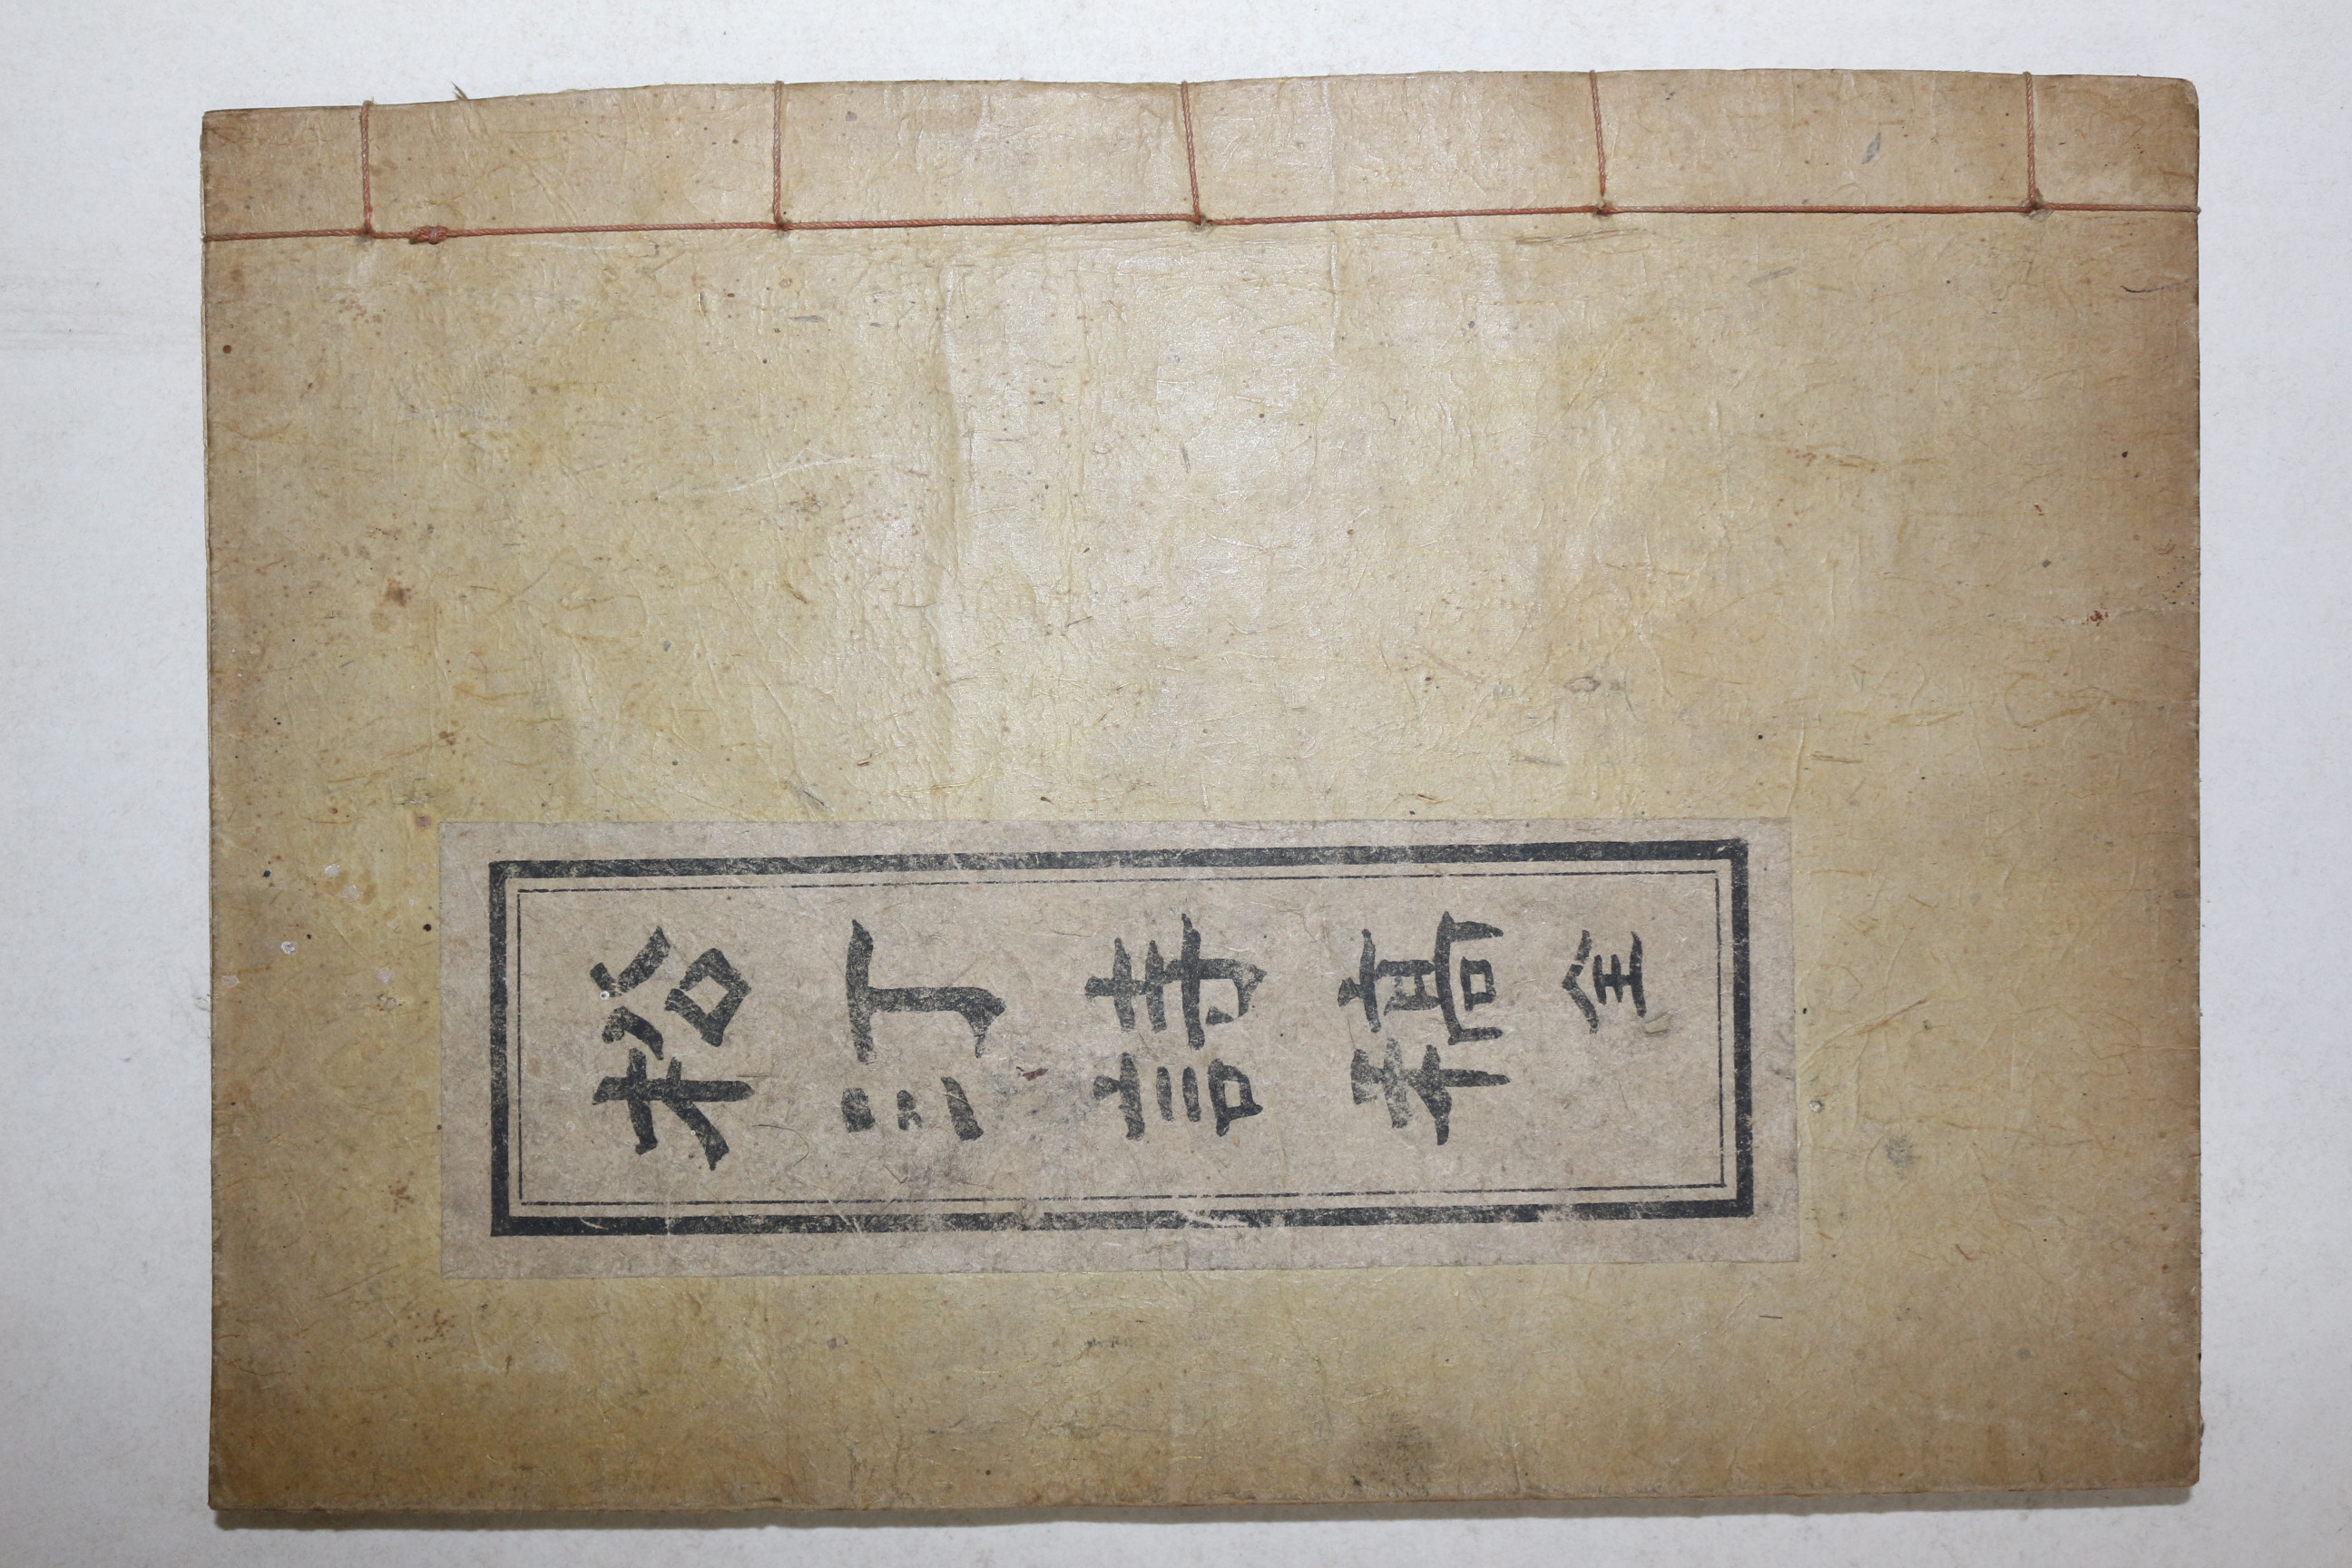 松汀詩稿全